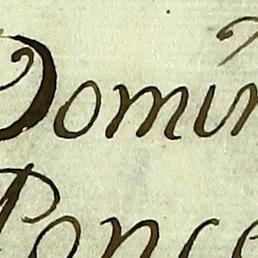 Domin
Ponce